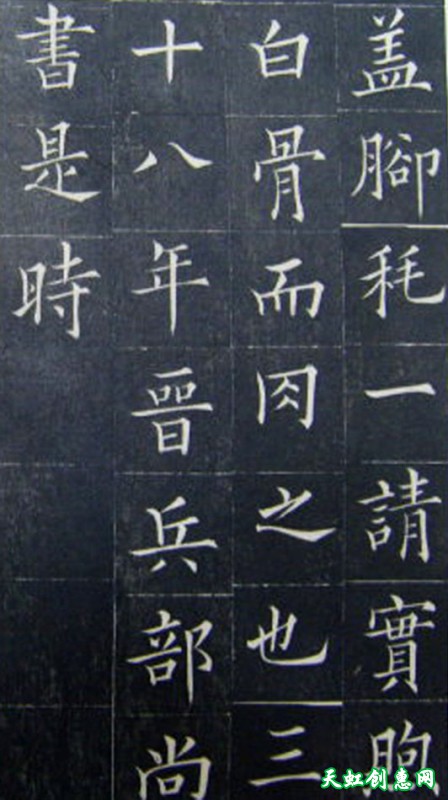 盖腳秏一請實煦
白骨而肉之也三
十八年晉兵部尚
書是時
天虹创惠网